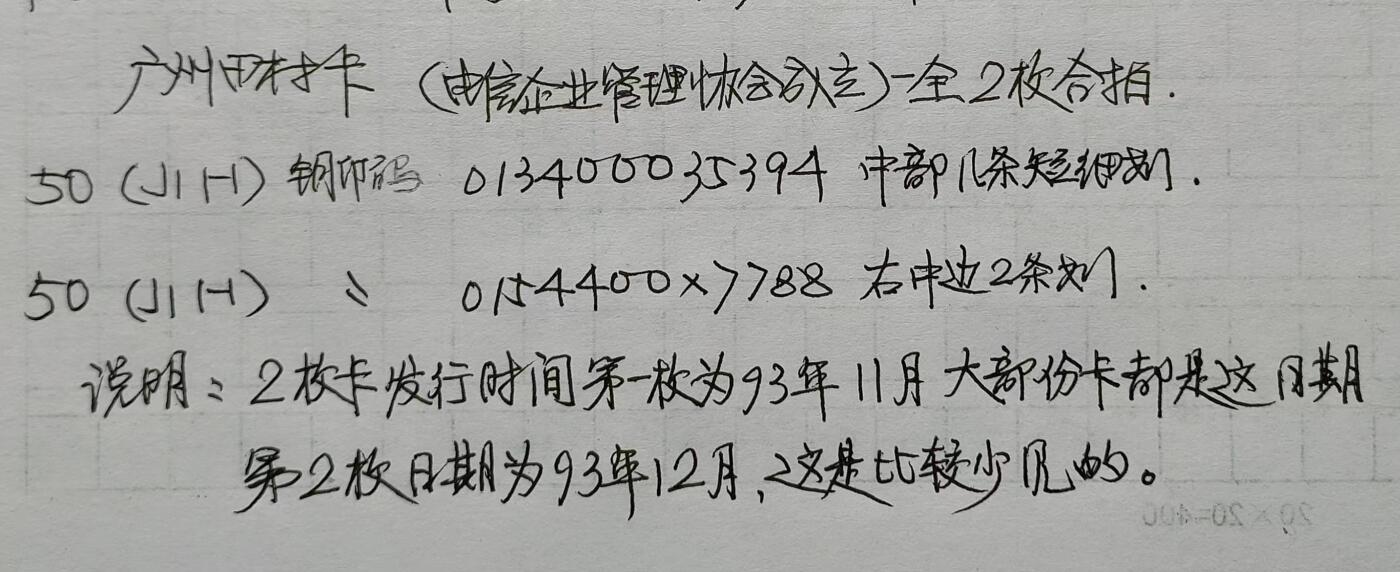 广州田村卡（电信企业管理协会成立）一全2枚合拍.
50（J1H）钢印码 0134000035394 中部几条短细划.
50（J1H） 〃 0154400×7788 右中边2条划.
说明：2枚卡发行时间第一枚为93年11月大部份卡都是这日期
第2枚日期为93年12月,这是比较少见的。
20×20=400